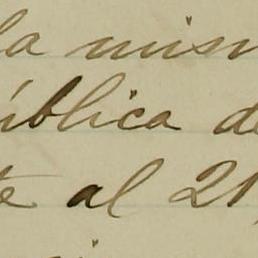 la mism
ública de
te al 21,